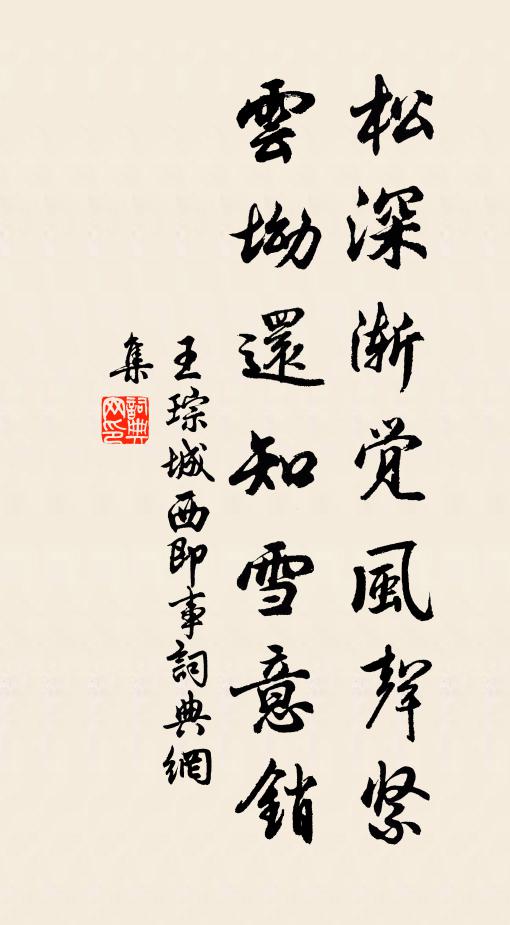 松深渐覚風聲紧
雲坳還知雪意銷
王琮城西即事詞典網
集
詞典网印